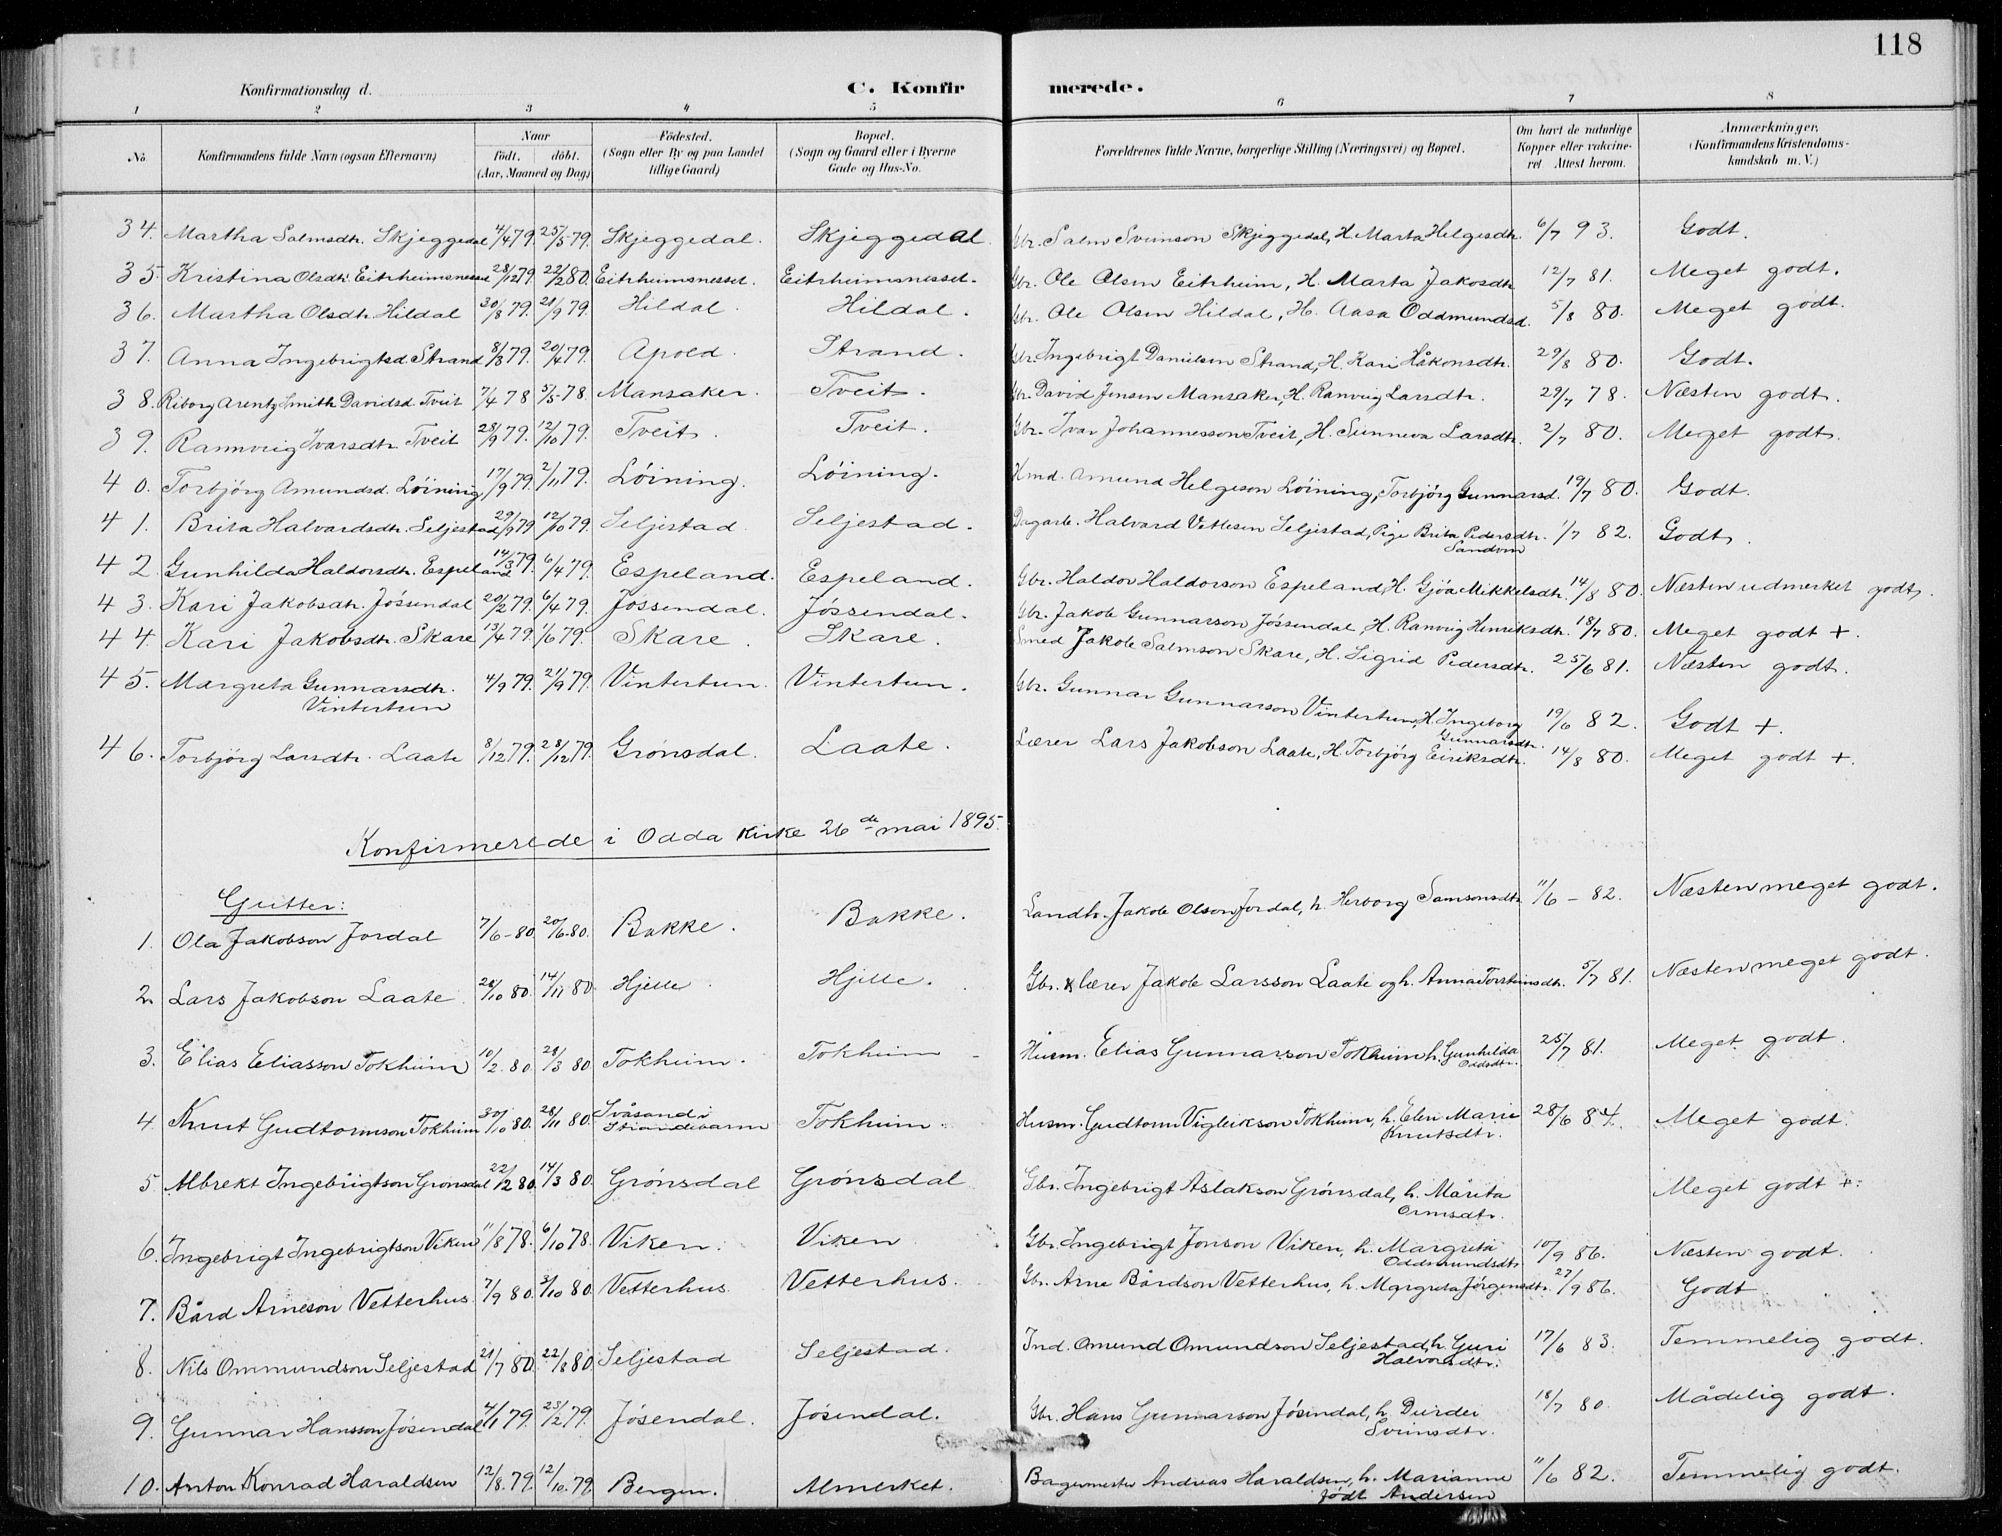 118
Konfirmationsdag d. C. Konfirmerede.
1 2 3 4 5 6 7 8
No Konfirmandens fulde Navn (ogsaa Efternavn) Naar födt. döbt. (Aar, Maaned og Dag) Födested. (Sogn eller By og paa Landet tillige Gaard) Bopæl. (Sogn og Gaard eller i Byerne Gade og Hus-No. Forældrenes fulde Navne, borgerlige Stilling (Næringsvei) og Bopæl. Om havt de naturlige Kopper eller vakcineret Attest herom. Anmærkninger, (Konfirmandens Kristendomskundskab m. V.)
34. Martha Salmsdtr. Skjeggedal 4/4 79. 25/5 79. Skjeggedal. Skjeggedal Gbr. Salm Sveinson Skjeggedal, H. Marta Helgesdtr. 6/7 93. Godt.
35. Kristina Olsdtr. Eitrheimsnesset 28/12 79 22/2 80. Eitrheimsnesset. Eitrheimsnesset. Gbr. Ole Olsen Eitrheim, H. Marta Jakosdtr 12/7 81. Meget godt.
36. Martha Olsdtr. Hildal 30/8 79. 21/9 79. Hildal. Hildal. Gbr. Ole Olsen Hildal, H. Aasa Oddmundsd. 5/8 80. Meget godt.
37. Anna Ingebrigtsd. Strand 8/3 79. 20/4 79. Apold. Strand. Gbr. Ingebrigt Danielsen Strand, H. Kari Håkonsdtr. 29/8 80. Godt.
38. Riborg Arentz Smith Davidsd. Tveit 7/4 78 5/5 78. Mansaker. Tveit. Gbr. David Jensen Mansaker, H. Ranveig Larsdtr. 29/7 78. Næsten godt.
39. Rannveig Ivarsdtr. Tveit 28/9 79. 12/10 79. Tveit. Tveit. Gbr. Ivar Johannesson Tveit, H. Sunneva Larsdtr. 2/7 80. Meget godt.
40. Torbjörg Amundsd. Löining 17/9 79. 2/11 79. Löining. Löining. Hmd. Amund Helgeson Löining, Torbjörg Gunnarsd. 19/7 80. Godt.
41. Brita Halvardsdtr. Seljestad 29/9 79 12/10 79. Seljestad. Seljestad. Dagarb. Halvard Vetlesen Seljestad, Pige Brita Pedersdtr. Sandven 1/7 82. Godt.
42. Gunhilda Haldorsdtr. Espeland 14/3 79. 6/4 79. Espeland. Espeland. Gbr. Haldor Haldorson Espeland, H. Gjöa Mikkelsdtr. 14/8 80. Næsten udmerket godt.
43. Kari Jakobsdtr. Jössendal 20/2 79. 6/4 79. Jössendal. Jössendal. Gbr. Jakob Gunnarson Jössendal, H. Ranveig Henriksdtr. 18/7 80. Meget godt +.
44. Kari Jakobsdtr. Skare 13/4 79. 1/6 79. Skare. Skare. Smed Jakob Salmson Skare, H. Sigrid Pedersdtr. 25/6 81. Næsten godt.
45. Margreta Gunnarsdtr. Vintertun 4/9 79. 21/9 79. Vintertun. Vintertun. Gbr. Gunnar Gunnarson Vintertun, H. Ingeborg Gunnarsdtr. 19/6 82. Godt +.
46. Torbjörg Larsdtr. Laate 8/12 79. 28/12 79. Grönsdal. Laate. Lærer Lars Jakobson Laate, H. Torbjörg Eiriksdtr. 14/8 80. Meget godt +.
Konfirmerede i Odda kirke 26de mai 1895.
Gutter:
1. Ola Jakobson Jordal 7/6-80 20/6-80. Bakke. Bakke. Landh. Jakob Olson Jordal, h. Herborg Samsonsdtr. 11/6 - 82. Næsten meget godt.
2. Lars Jakobson Laate. 28/10 80. 14/11 80. Hjelle. Hjelle. Gbr. & lærer Jakob Larsson Laate og h. Anna Torsteinsdtr. 5/7 81. Næsten meget godt.
3. Elias Eliasson Tokheim 10/2. 80. 28/3 80 Tokheim. Tokheim Husm. Elias Gunnarson Tokheim h. Gunhilda Oddsdtr. 25/7 81. Meget godt.
4. Knut Gudtormson Tokheim 30/10 80. 28/11 80. Svåsand i Strandebarm Tokheim. Husm. Gudtorm Vigleikson Tokheim, h. Elen Marie Knutsdtr. 28/6 84. Meget godt.
5. Albrekt Ingebrigtson Grönsdal 22/2 80. 14/3 80. Grönsdal Grönsdal Gbr. Ingebrigt Aslakson Grönsdal, h. Marita Ormsdtr. Meget godt +.
6. Ingebrigt Ingebrigtson Viken 11/8 78. 6/10 78. Viken. Viken Gbr. Ingebrigt Jonson Viken, h. Margreta Oddmundsdtr. 10/9 86. Næsten godt.
7. Bård Arneson Vetterhus. 7/9 80. 3/10 80. Vetterhus. Vetterhus. Gbr. Arne Bårdson Vetterhus, h. Margreta Jörgensdtr. 27/9 86. Godt
8. Nils Ommundson Seljestad 21/7 80. 22/8 80. Seljestad Seljestad. Ind. Omund Omundson Seljestad, h. Guri Halvorsdtr. 17/6 83. Temmelig godt.
9. Gunnar Hansson Jösendal 4/1 79. 23/2 79. Jösendal. Jösendal. Gbr. Hans Gunnarson Jösendal, h. Durdei Sveinsdtr. 18/7 80. Mådelig godt.
10. Anton Konrad Haraldsen 12/8. 79. 12/10. 79. Bergen. Almerket. Bagermester Andreas Haraldsen, h. Marianne födt Andersen 11/6 82. Temmelig godt.